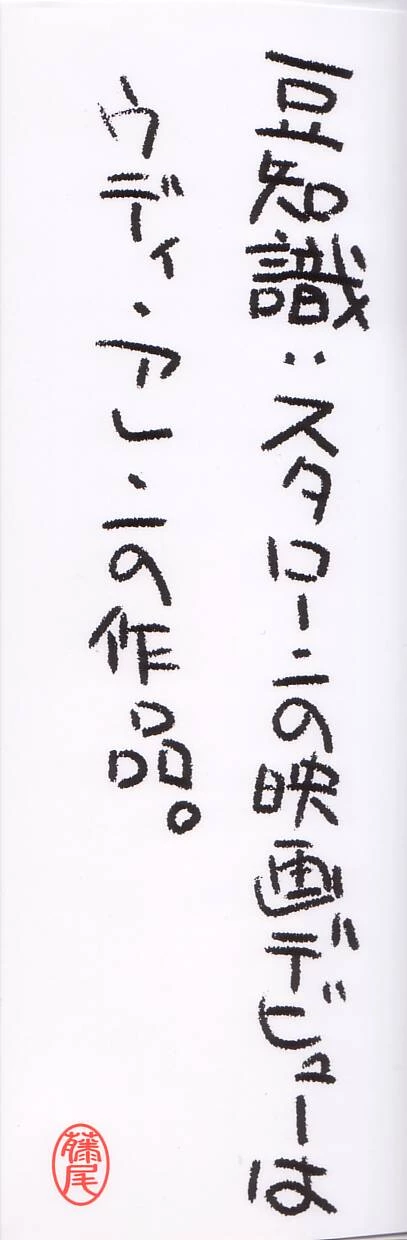 豆知識:スタローニの映画デビューは
ウディ・アレ・ニの作品。
藤尾